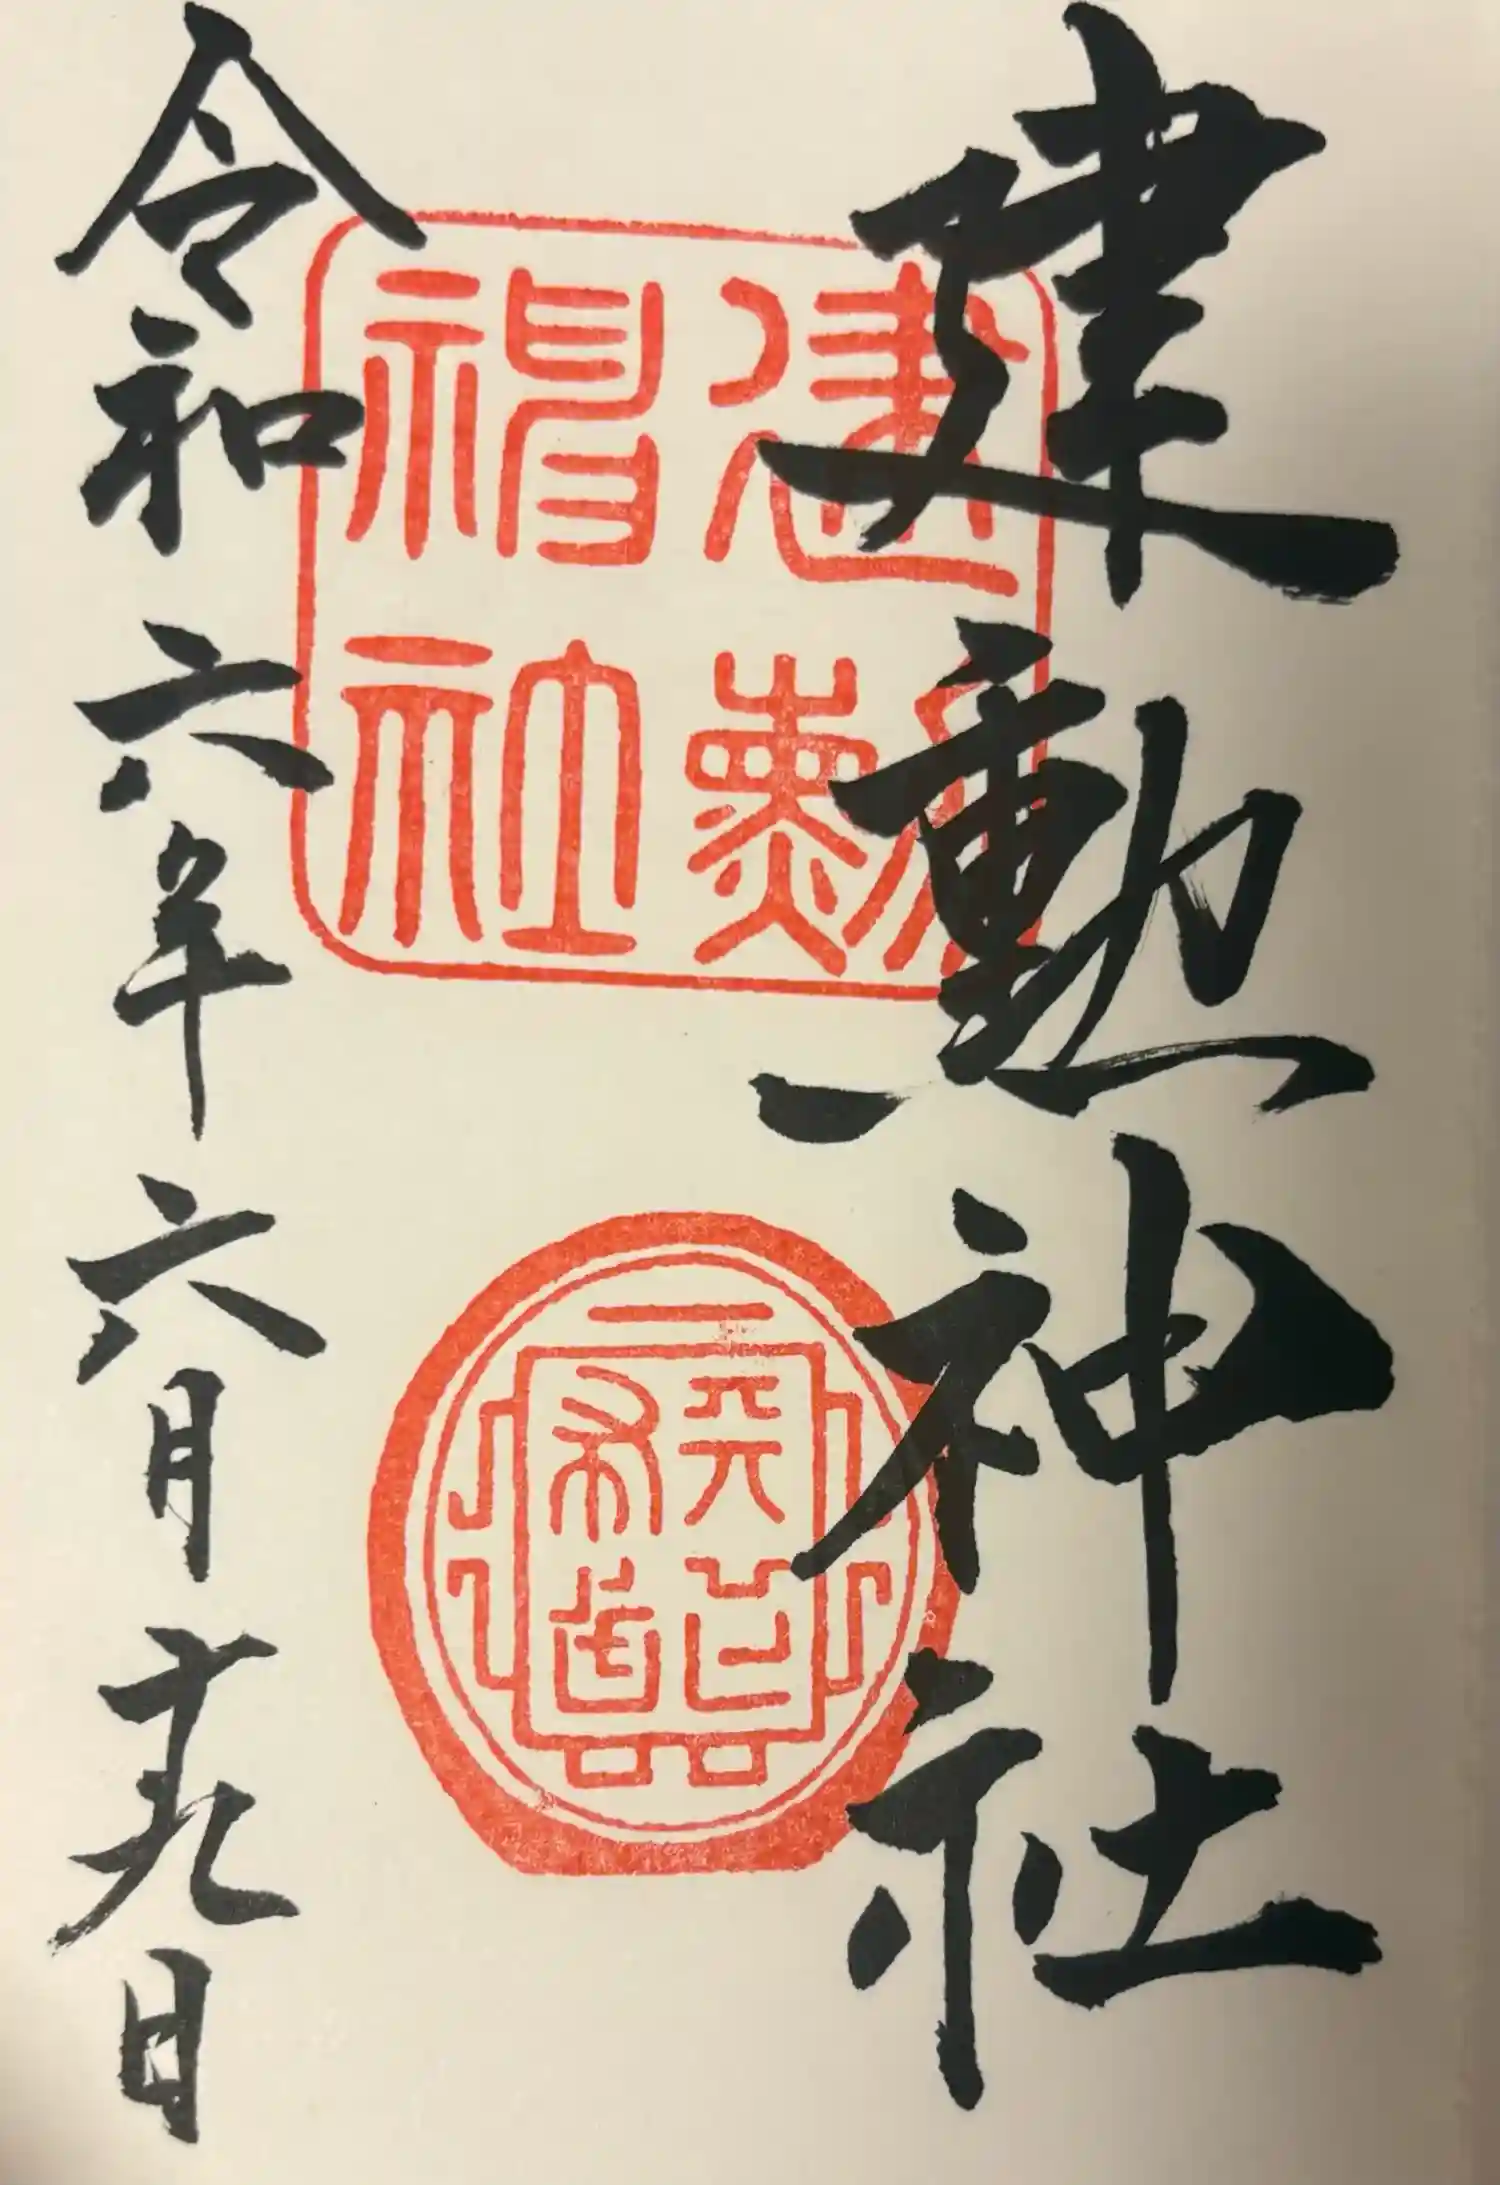 建勲神社
建勳
神社
令和六年六月十九日